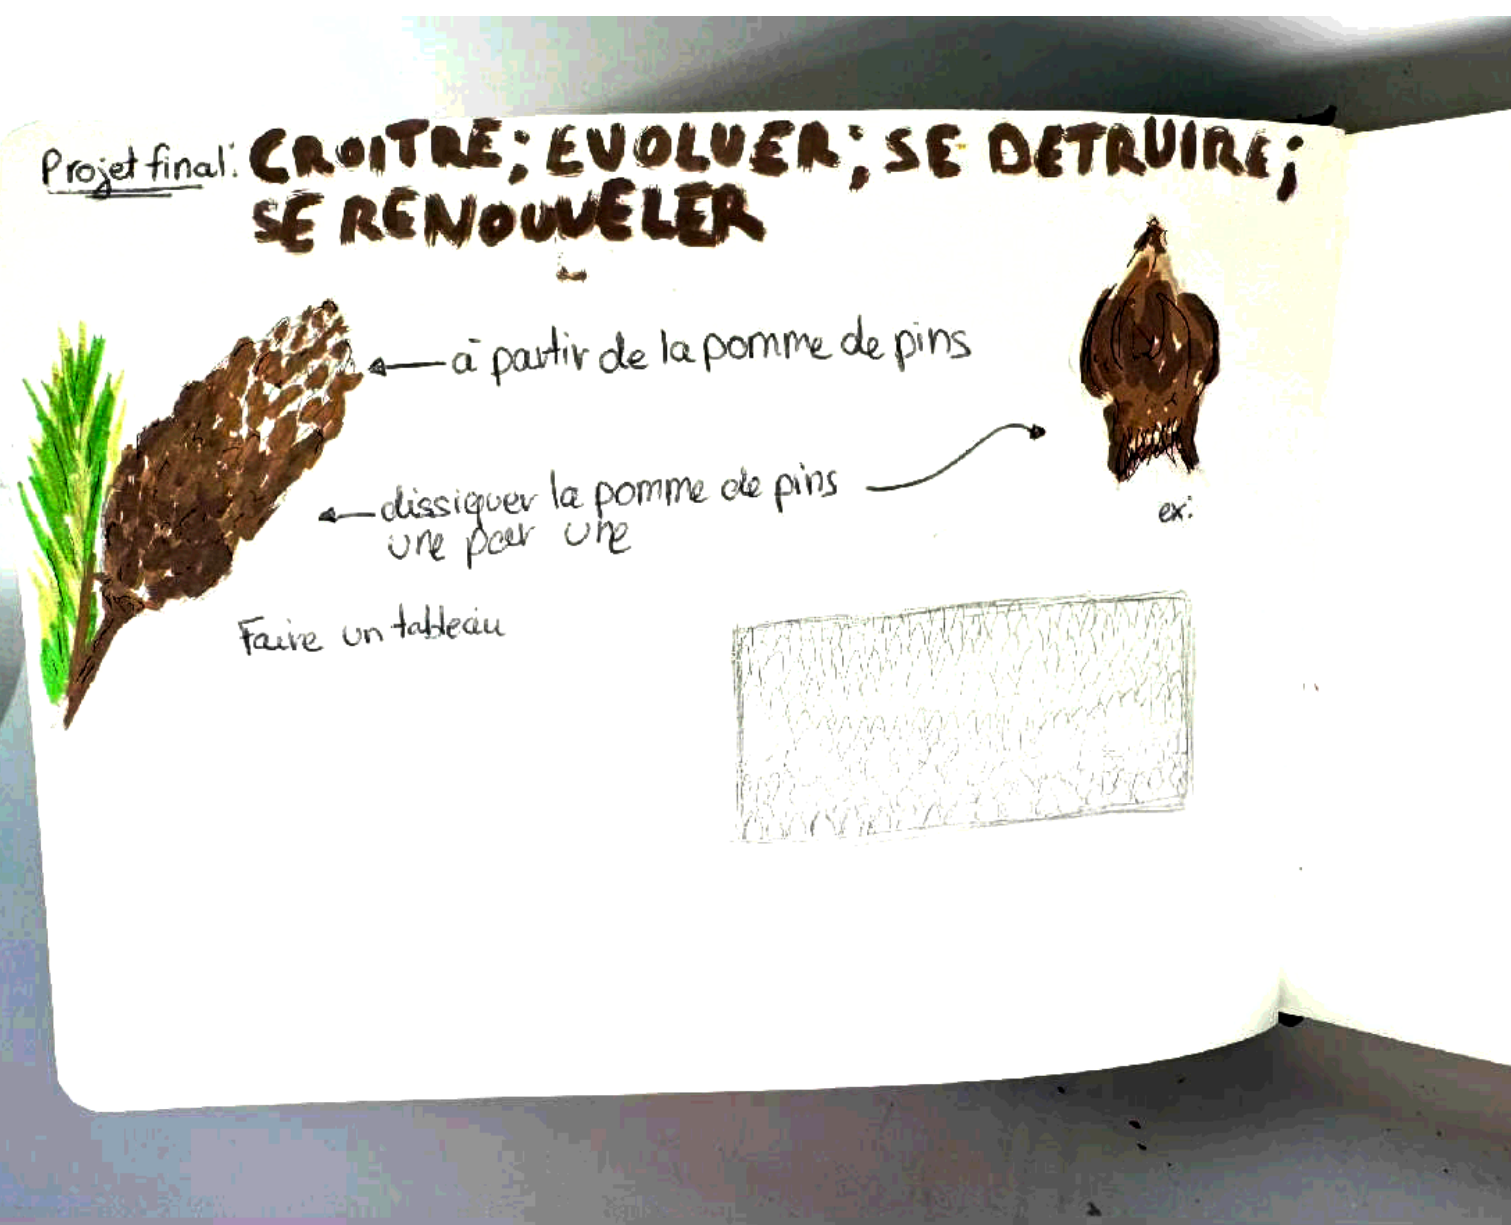 Projet final: CROITRE; EVOLUER; SE DETRUIRE;
SE RENOUVELER
à partir de la pomme de pins
dissiquer la pomme de pins
une par une
ex:
Faire un tableau